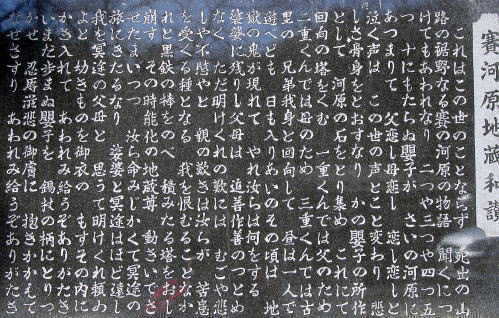 賽河原地蔵和讃
これはこの世のことならず 死出の山
路の裾野なる賽の河原の物語 聞くにつ
けてもあわれなり 二つや三つや四つ五
つ 十にもたらぬ嬰子が さいの河原に
あつまりて 父恋し母恋し 恋し恋しと
泣く声は この世の声とこと変わり 悲
しさ骨身をとおすなり かの嬰子の所作
として 河原の石をとり集め これにて
回向の塔をくむ 一重くんでは父のため
二重くんでは母のため 三重くんでは古
里の 兄弟我身と回向して 昼は一人で
遊べども 日も入りあいのその頃は 地
獄の鬼が現れて やれ汝らは何をする
娑婆に残りし父母は 追善作善のつとめ
なく ただ明けくれの歎には むごや悲
しや不愍やと 親の歎きは汝らが 苦患
を受くる種となる 我を恨むることなか
れと黒鉄の棒をのべ 積みたる塔をおし
崩す その時能化の地蔵尊 動ぎいでさ
せたまいつつ 汝ら命みじかくて冥途の
旅にきたるなり 娑婆と冥途はほど遠し
我を冥途の父母と 思うて明けくれ頼め
よと 幼きものを御衣の もすその内に
かき入れて あわれみ給うぞありがたき
いまだ歩まぬ嬰子を 錫杖の柄にとりつ
かせ 忍辱慈悲の御膚に 抱きかかえて
なでさすり あわれみ給うぞありがたき